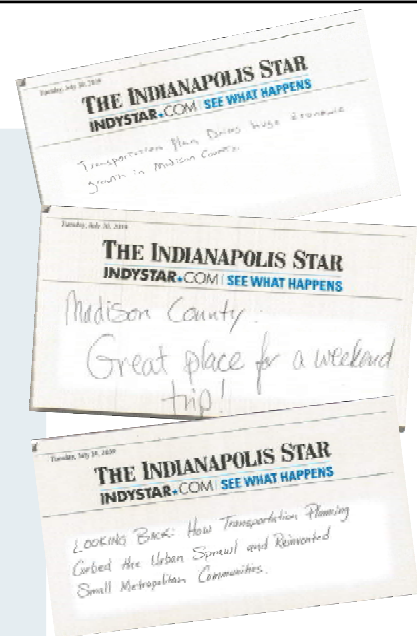 Tuesday, July 30, 2030
THE INDIANAPOLIS STAR
INDYSTAR.COM SEE WHAT HAPPENS
Transportation Plan Drives huge economic
growth in Madison County.
Tuesday, July 30,
THE INDIANAPOLIS STAR
INDYSTAR.COM SEE WHAT HAPPENS
Madison County:
Great place for a weekend
trip!
Tuesday, July 30,
THE INDIANAPOLIS STAR
INDYSTAR.COM SEE WHAT HAPPENS
LOOKING BACK: How Transportation Planning
Curbed the Urban Sprawl and Reinvented
Small Metropolitan Communities.